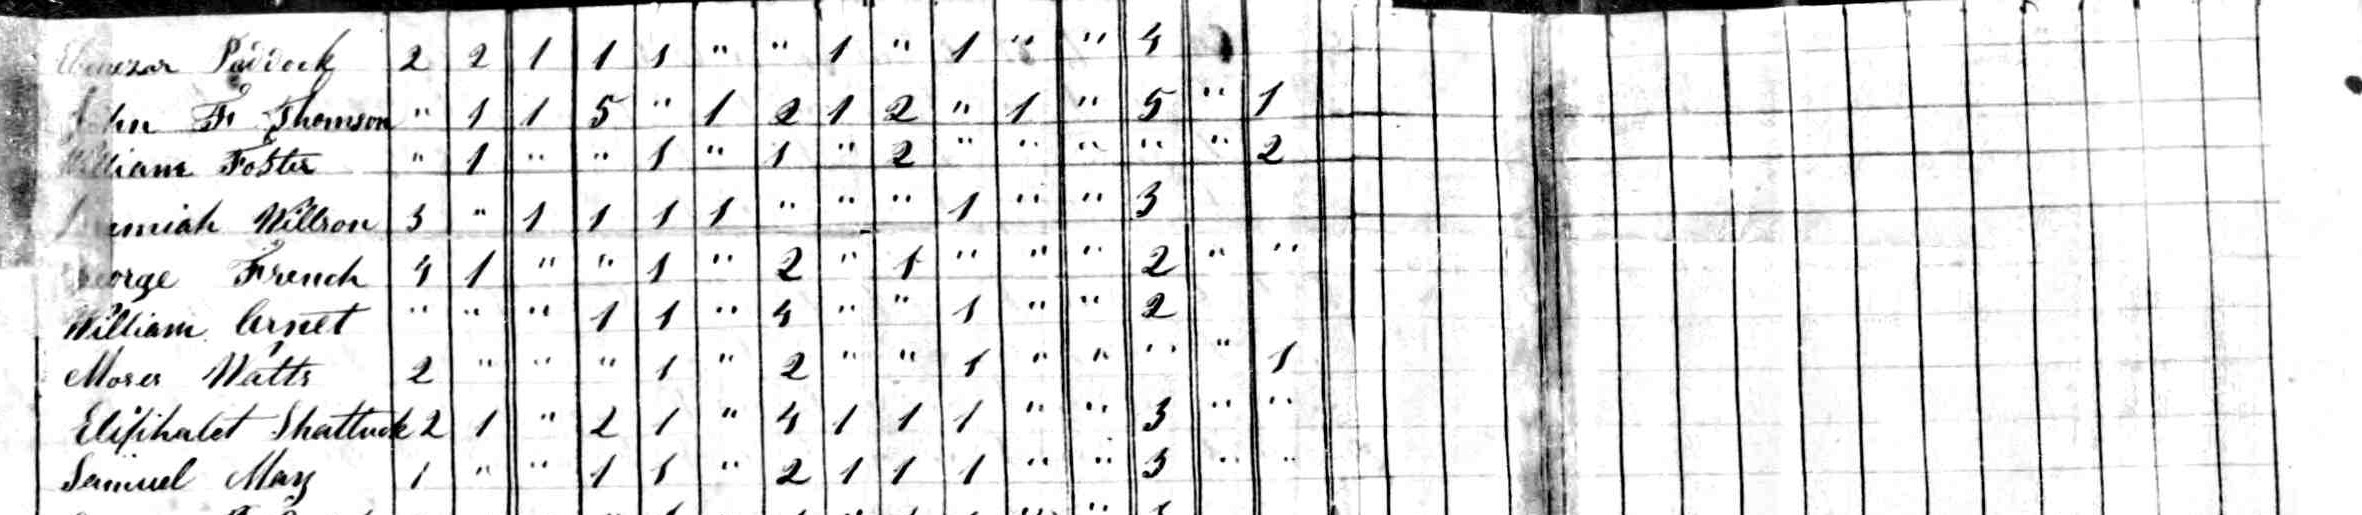 Ebenezar Paddock 2 2 1 1 1 " " 1 " 1 " " 4
John F Thomson " 1 1 5 " 1 2 1 2 " 1 " 5 " 1
William Foster " 1 " " 1 " 1 " 2 " " " " " 2
Jeremiah Willson 3 " 1 1 1 1 " " " 1 " " 3
George French 4 1 " " 1 " 2 " 1 " " " 2 " "
William " " " 1 1 " 4 " " 1 " " 2
Moses Watts 2 " " " 1 " 2 " " 1 " " " " 1
Eliphalet Shattuck 2 1 " 2 1 " 4 1 1 1 " " 3 " "
Samuel May 1 " " 1 1 " 2 1 1 1 " " 3 " "